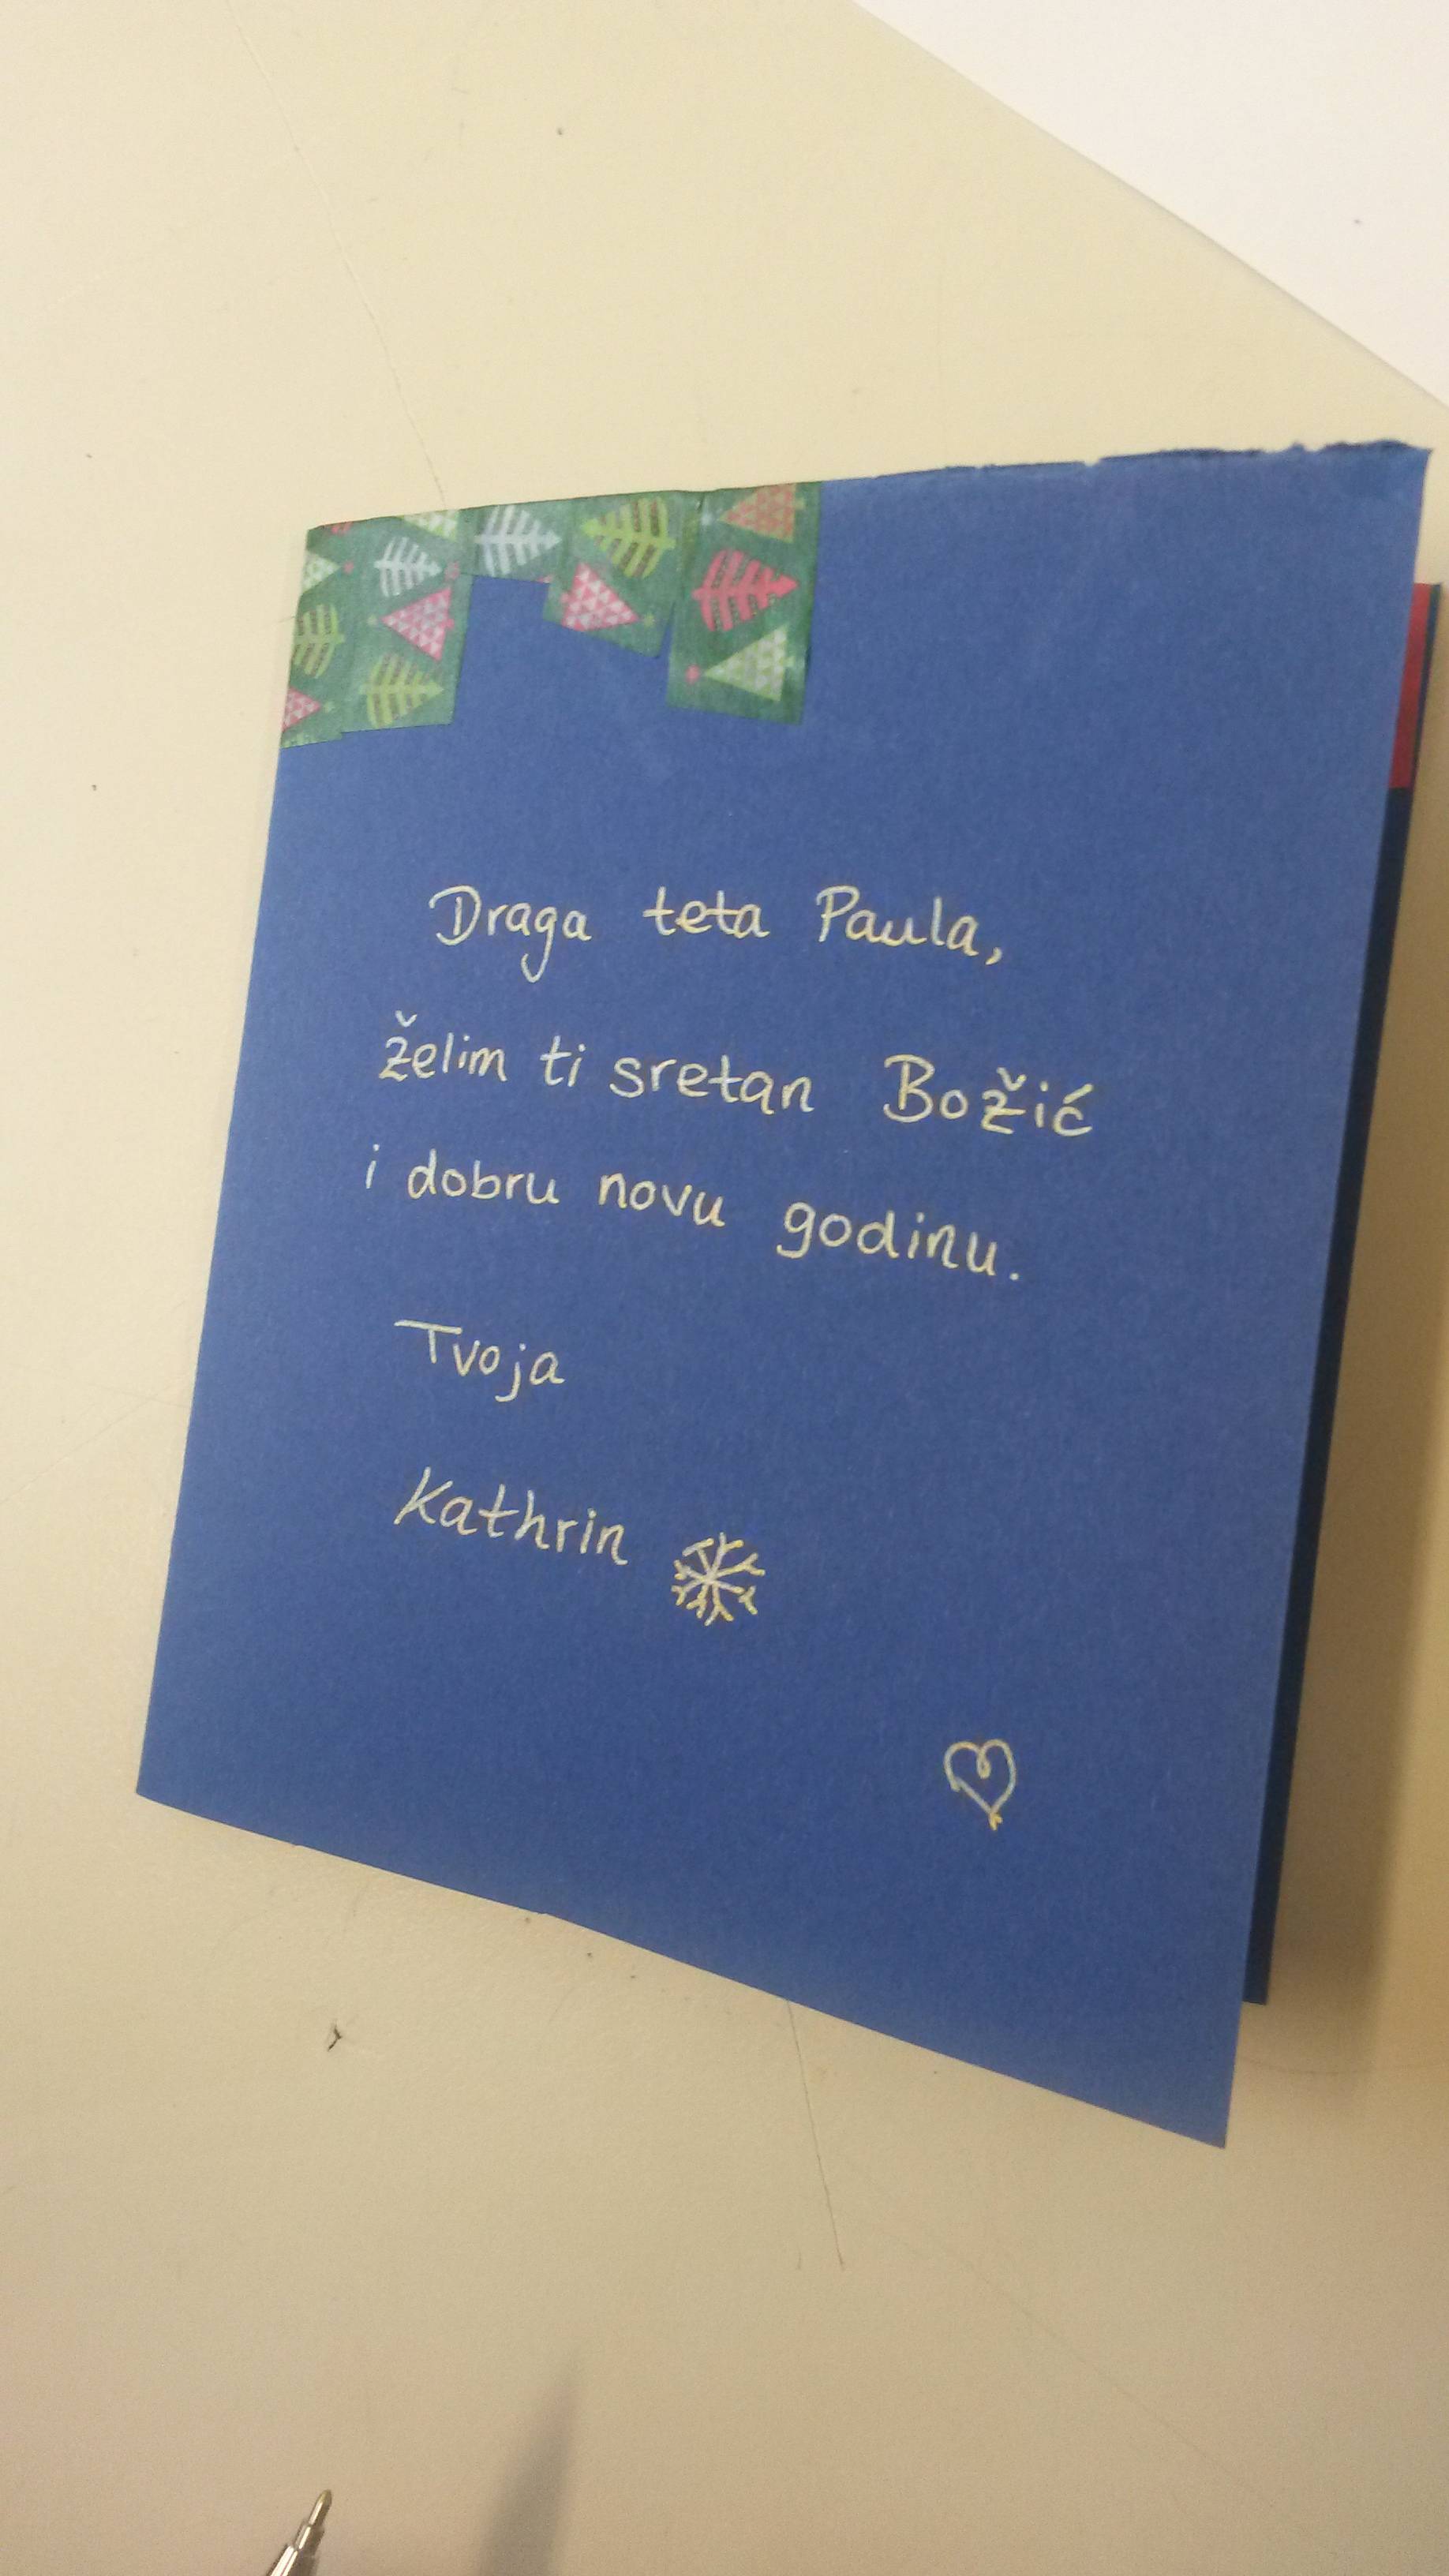 Draga teta Paula,
želim ti sretan Božić
i dobru novu godinu.
Tvoja
Kathrin